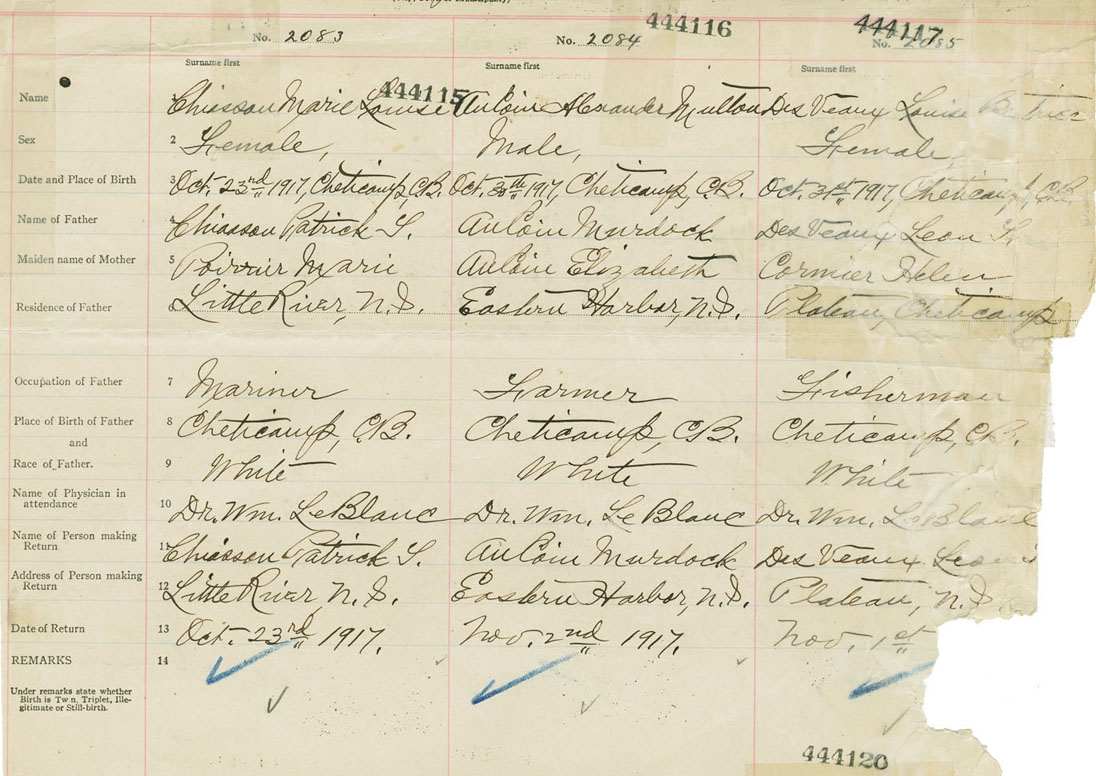 444116
444117
No. 2083 No. 2084 No. 2085
Surname first Surname first Surname first
444115
Name Chiasson Marie Louise AuCoin Alexander Multon Des Veaux Louise
Sex 2 Female, Male, Female,
Date and Place of Birth 3 Oct. 23nd 1917, Cheticamp, C.B. Oct. 30th 1917, Cheticamp, C.B. Oct. 31st 1917, Cheticamp, C.B.
Name of Father 4 Chiasson Patrick S. AuCoin Murdock Des Veaux Leon
Maiden name of Mother 5 Poirrir Marie AuCoin Elizabeth Cormier Helen
Residence of Father 6 Little River, N.S. Eastern Harbor, N.S. Plateau, Cheticamp
Occupation of Father 7 Mariner Farmer Fisherman
Place of Birth of Father 8 Cheticamp, C.B. Cheticamp, C.B. Cheticamp, C.B.
and
Race of Father. 9 White White White
Name of Physician in
attendance 10 Dr. Wm. LeBlanc Dr. Wm. LeBlanc Dr. Wm. LeBlanc
Name of Person making
Return 11 Chiasson Patrick S. AuCoin Murdock Des Veaux
Address of Person making
Return 12 Little River N.S. Eastern Harbor, N.S. Plateau, N.S.
Date of Return 13 Oct. 23rd 1917. Nov. 2nd 1917. Nov. 1st
REMARKS 14
Under remarks state whether
Birth is Twin, Triplet, Ille-
gitimate or Still-birth.
444120